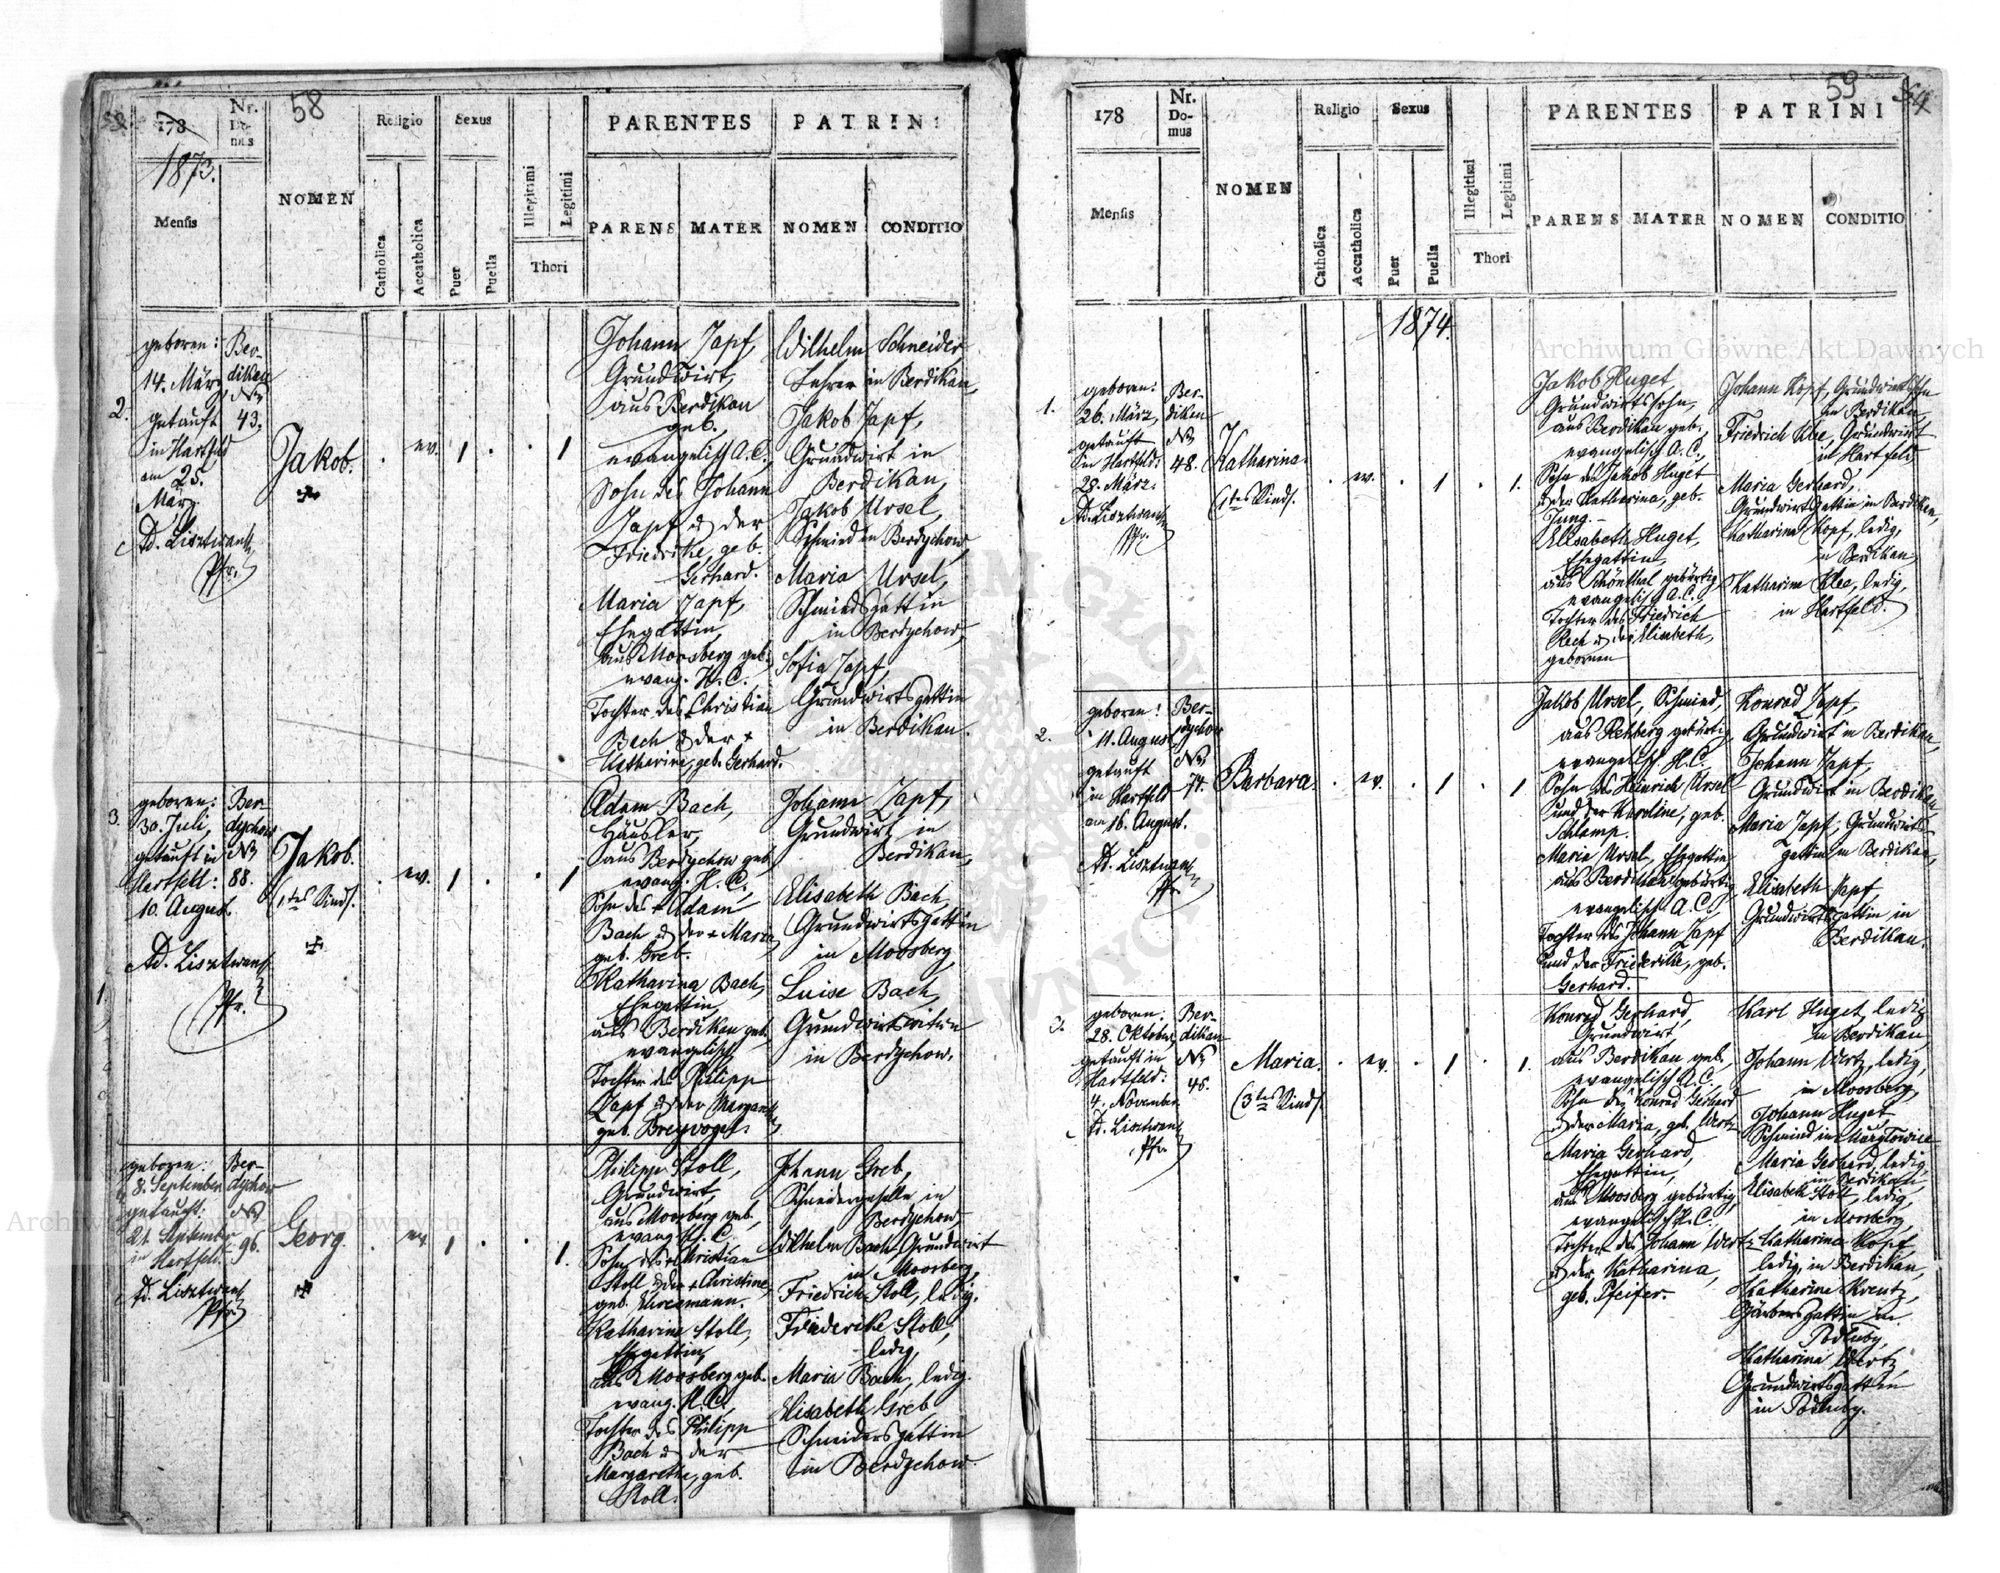 58
178
1873.
Mensis
Nr.
Do-
mus
NOMEN
Religio
Catholica
Accatholica
Sexus
Puer
Puella
Illegitimi
Legitimi
Thori
PARENTES
PARENS
MATER
PATRINI
NOMEN
CONDITIO
2.
geboren:
14. März
getauft
in Hartfeld
am 23.
März.
Ad. Lisztwan
Pfr.
Ber-
diken
No
43.
Jakob.
ev.
1
1
Johann Zapf,
Grundwirt,
aus Berdikau
geb.,
evangelisch A.C.,
Sohn des Johann
Zapf u der
Friedrike, geb.
Gerhard.
Maria Zapf,
Ehegattin,
aus Moosberg geb.,
evang. H.C.
Tochter des Christian
Bach u der +
Katharina, geb. Gerhard.
Wilhelm Schneider
Lehrer in Berdikau,
Jakob Zapf,
Grundwirt in
Berdikau,
Jakob Ursel,
Schmied in Berdychow,
Maria Ursel,
Schmiedsgattin
in Berdychow,
Sofia Zapf,
Grundwirtsgattin
in Berdikau.
3.
geboren:
30. Juli,
getauft in
Hartfeld:
10. August.
Ad. Lisztwan
Pfr.
Ber-
dychow
No
88.
Jakob.
(1tes Kind).
ev.
1
1
Adam Bach,
Häusler,
aus Berdychow geb.
evang. H.C.,
Sohn des + Adam
Bach u der + Maria,
geb. Greb.
Katharina Bach,
Ehegattin,
aus Berdikau geb.
evangelisch
Tochter des Philipp
Zapf u der Margareth,
geb. Breyvogel.
Johann Zapf,
Grundwirt in
Berdikau,
Elisabeth Bach,
Grundwirtsgattin
in Moosberg,
Luise Bach,
Grundwirtswitwe
in Berdychow.
geboren:
8. September
getauft:
21. September
in Hartfeld.
Ad. Lisztwan
Pfr.
Ber-
dychow
No
96.
Georg.
ev.
1
1.
Philipp Stoll,
Grundwirt,
aus Moosberg geb.,
evang. H.C.
Sohn des + Christian
Stoll u der + Christine,
geb.
Katharina Stoll,
Ehegattin,
aus Moosberg geb.
evang. H.C.,
Tochter des Philipp
Bach u der
Margarethe, geb.
Stoll.
Johann Greb,
Schneidergeselle in
Berdychow,
Wilhelm Bach, Grundwirt
in Moosberg,
Friedrich Stoll, ledig.
Friederike Stoll,
ledig,
Maria Bach, ledig.
Elisabeth Greb
Schneidersgattin
in Berdychow.
59
54
178
Mensis
Nr.
Do-
mus
NOMEN
Religio
Catholica
Accatholica
Sexus
Puer
Puella
Illegitimi
Legitimi
Thori
PARENTES
PARENS
MATER
PATRINI
NOMEN
CONDITIO
1874.
1.
geboren:
26. März,
getauft
in Hartfeld:
28. März.
Ad. Lisztwan
Pfr.
Ber-
diken
No
48.
Katharina.
(1tes Kind).
ev.
1
1.
Jakob Huget,
Grundwirtssohn,
aus Berdikau geb.,
evangelisch A.C.,
Sohn des Jakob Huget
u der Katharina, geb.
Jung.
Elisabeth Huget,
Ehegattin,
aus Schönthal gebürtig,
evangelisch A.C.,
Tochter des Friedrich
Rech u der Elisabeth,
gebornen
Johann Kopf, Grundwirtssohn
in Berdikau,
Friedrich Klee, Grundwirt
in Hartfeld,
Maria Gerhard,
Grundwirtsgattin in Berdikau,
Katharina Kopf, ledig,
in Berdikau,
Katharina Klee, ledig,
in Hartfeld.
2.
geboren:
11. August,
getauft
in Hartfeld
am 16. August.
Ad. Lisztwan
Pfr.
Ber-
dychow
No
74.
Barbara.
ev.
1
1
Jakob Ursel, Schmied,
aus Rehberg gebürtig,
evangelisch H.C.
Sohn des Heinrich Ursel
und der Karoline, geb.
Schlamp.
Maria Ursel, Ehegattin
aus Berdikau gebürtig
evangelisch A.C.,
Tochter des Johann Zapf
und der Friederike, geb.
Gerhard.
Konrad Zapf,
Grundwirt in Berdikau,
Johann Zapf,
Grundwirt in Berdikau,
Maria Zapf, Grundwirts-
gattin in Berdikau,
Elisabeth Zapf,
Grundwirtsgattin in
Berdikau.
3.
geboren:
28. Oktober,
getauft in
Hartfeld:
4. November.
Ad. Lisztwan
Pfr.
Ber-
dikau
No
45.
Maria.
(3tes Kind).
ev.
1
1.
Konrad Gerhard,
Grundwirt,
aus Berdikau geb.,
evangelisch A.C.,
Sohn des Konrad Gerhard
u der Maria, geb. Wertz.
Maria Gerhard,
Ehegattin,
aus Moosberg gebürtig,
evangelisch H.C.
Tochter des Johann Wertz
u der Katharina,
geb. Pfeifer.
Karl Huget, ledig
in Berdikau,
Johann Wertz, ledig,
in Moosberg,
Johann Huget
Schmied in
Maria Gerhard, ledig,
in Berdikau,
Elisabeth Stoll, ledig,
in Moosberg,
Katharina Kopf,
ledig, in Berdikau,
Katharina Kreutz,
Färbersgattin in
Podluby,
Katharina Wertz,
Grundwirtsgattin
in Podluby.
Archiwum Główne Akt Dawnych
Archiwum Główne Akt Dawnych